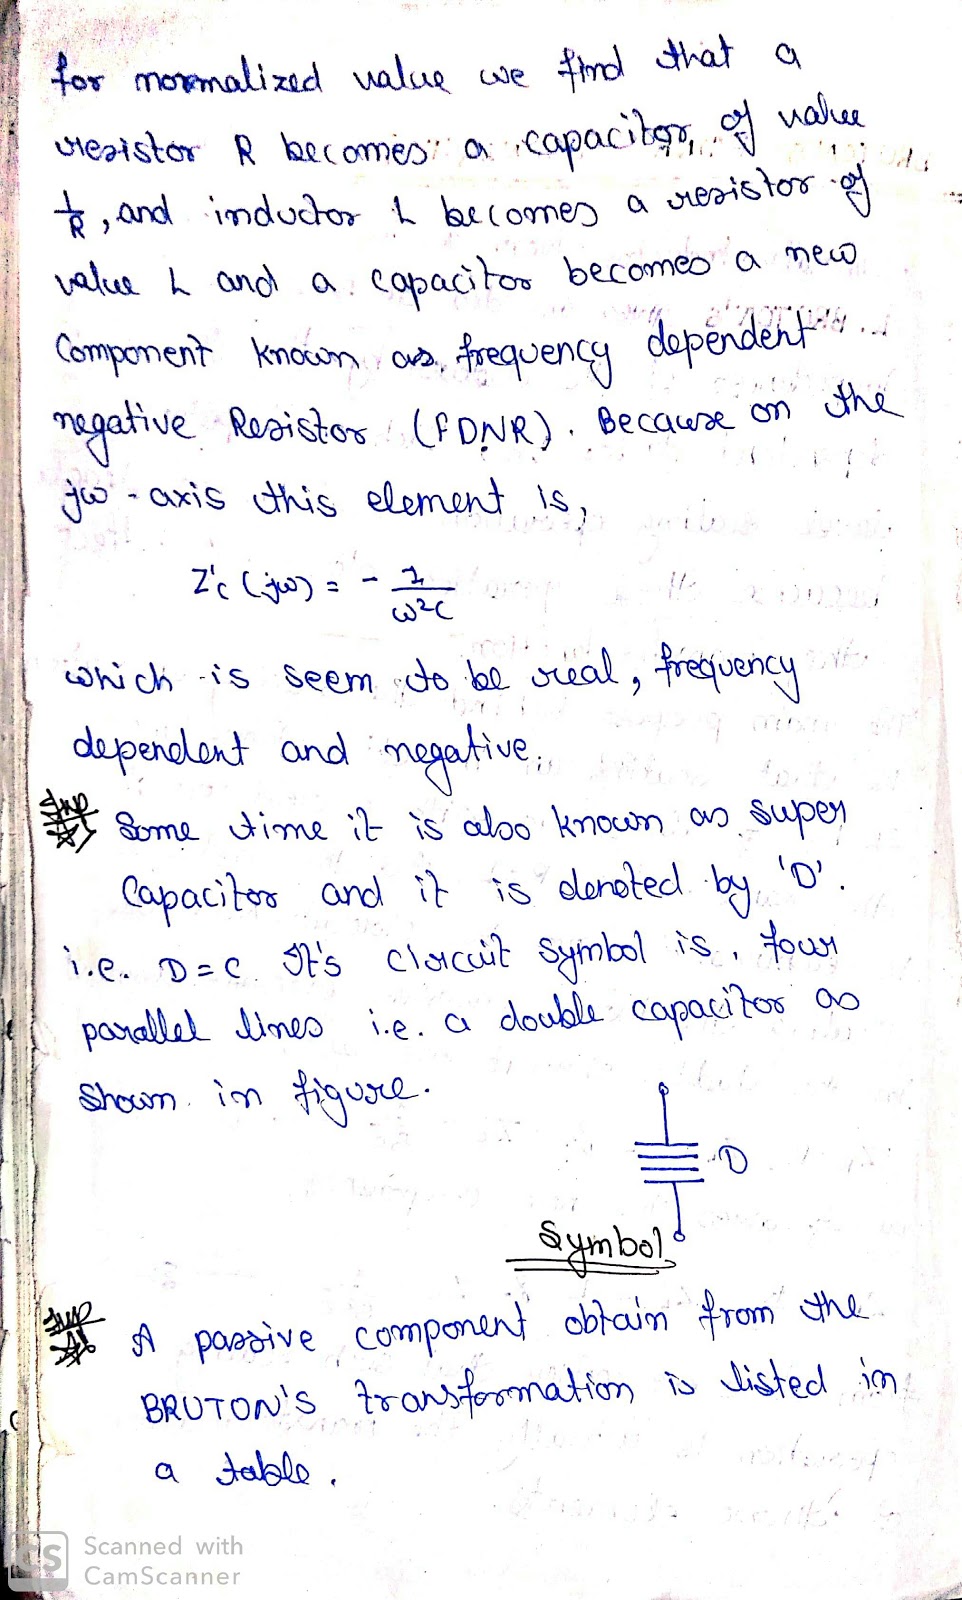 for normalized value we find that a
resistor R becomes a capacitor, of value
1/R, and inductor L becomes a resistor of
value L and a capacitor becomes a new
Component known as frequency dependent
negative Resistor (FDNR). Because on the
jω-axis this element is,
Z'c (jω) = - 1/ω²C
which is seem to be real, frequency
dependent and negative.
Imp Some time it is also known as super
Capacitor and it is denoted by 'D'.
i.e. D=C It's Circuit symbol is, four
parallel lines i.e. a double capacitor as
shown in figure.
D
Symbol
Imp A passive component obtain from the
BRUTON'S transformation is listed in
a table.
CS Scanned with
CamScanner